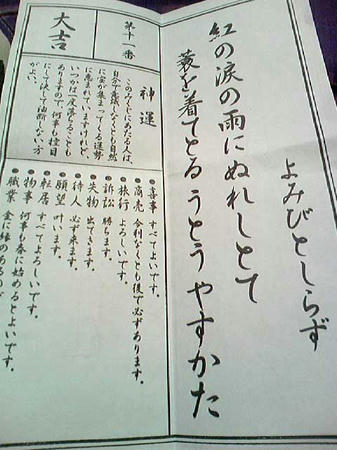 よみびとしらず
紅の涙の雨にぬれしとて
蓑を着てとる うとう やすかた
第十一番
大吉
神運
このみくじにあたる人は、
自分で意識しなくとも自然
に宝が集まってくる運勢
に恵まれていますけれど、
いつかは一度落ちることも
ありますので、何事も控目
にして決して油断しない方
がよい。
●喜事 すべてよいです。
●商売 今利なくとも後で必ずあります。
●旅行 よろしいです。
●訴訟 勝ちます。
●失物 出てきます。
●待人 必ず来ます。
●願望 叶います。
●転居 すべてよろしいです。
●物事 何事も春に始めるとよいです。
●職業 金に縁のあるもの